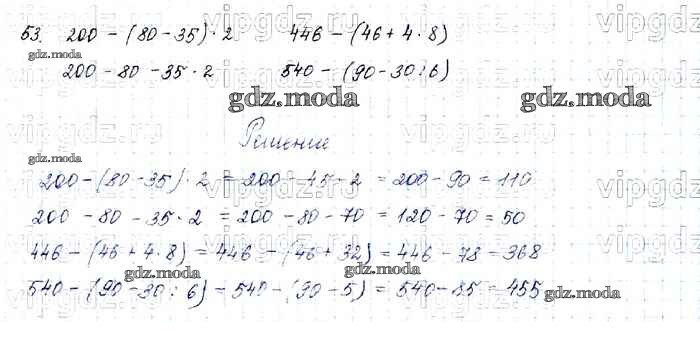 53. 200 - (80 - 35) · 2 446 - (46 + 4 · 8)
200 - 80 - 35 · 2 540 - (90 - 30 : 6)
gdz.moda gdz.moda
Решение
gdz.moda
200 - (80 - 35) · 2 = 200 - 45 · 2 = 200 - 90 = 110
200 - 80 - 35 · 2 = 200 - 80 - 70 = 120 - 70 = 50
446 - (46 + 4 · 8) = 446 - (46 + 32) = 446 - 78 = 368
gdz.moda gdz.moda
540 - (90 - 30 : 6) = 540 - (90 - 5) = 540 - 85 = 455
gdz.moda
vipgdz.ru